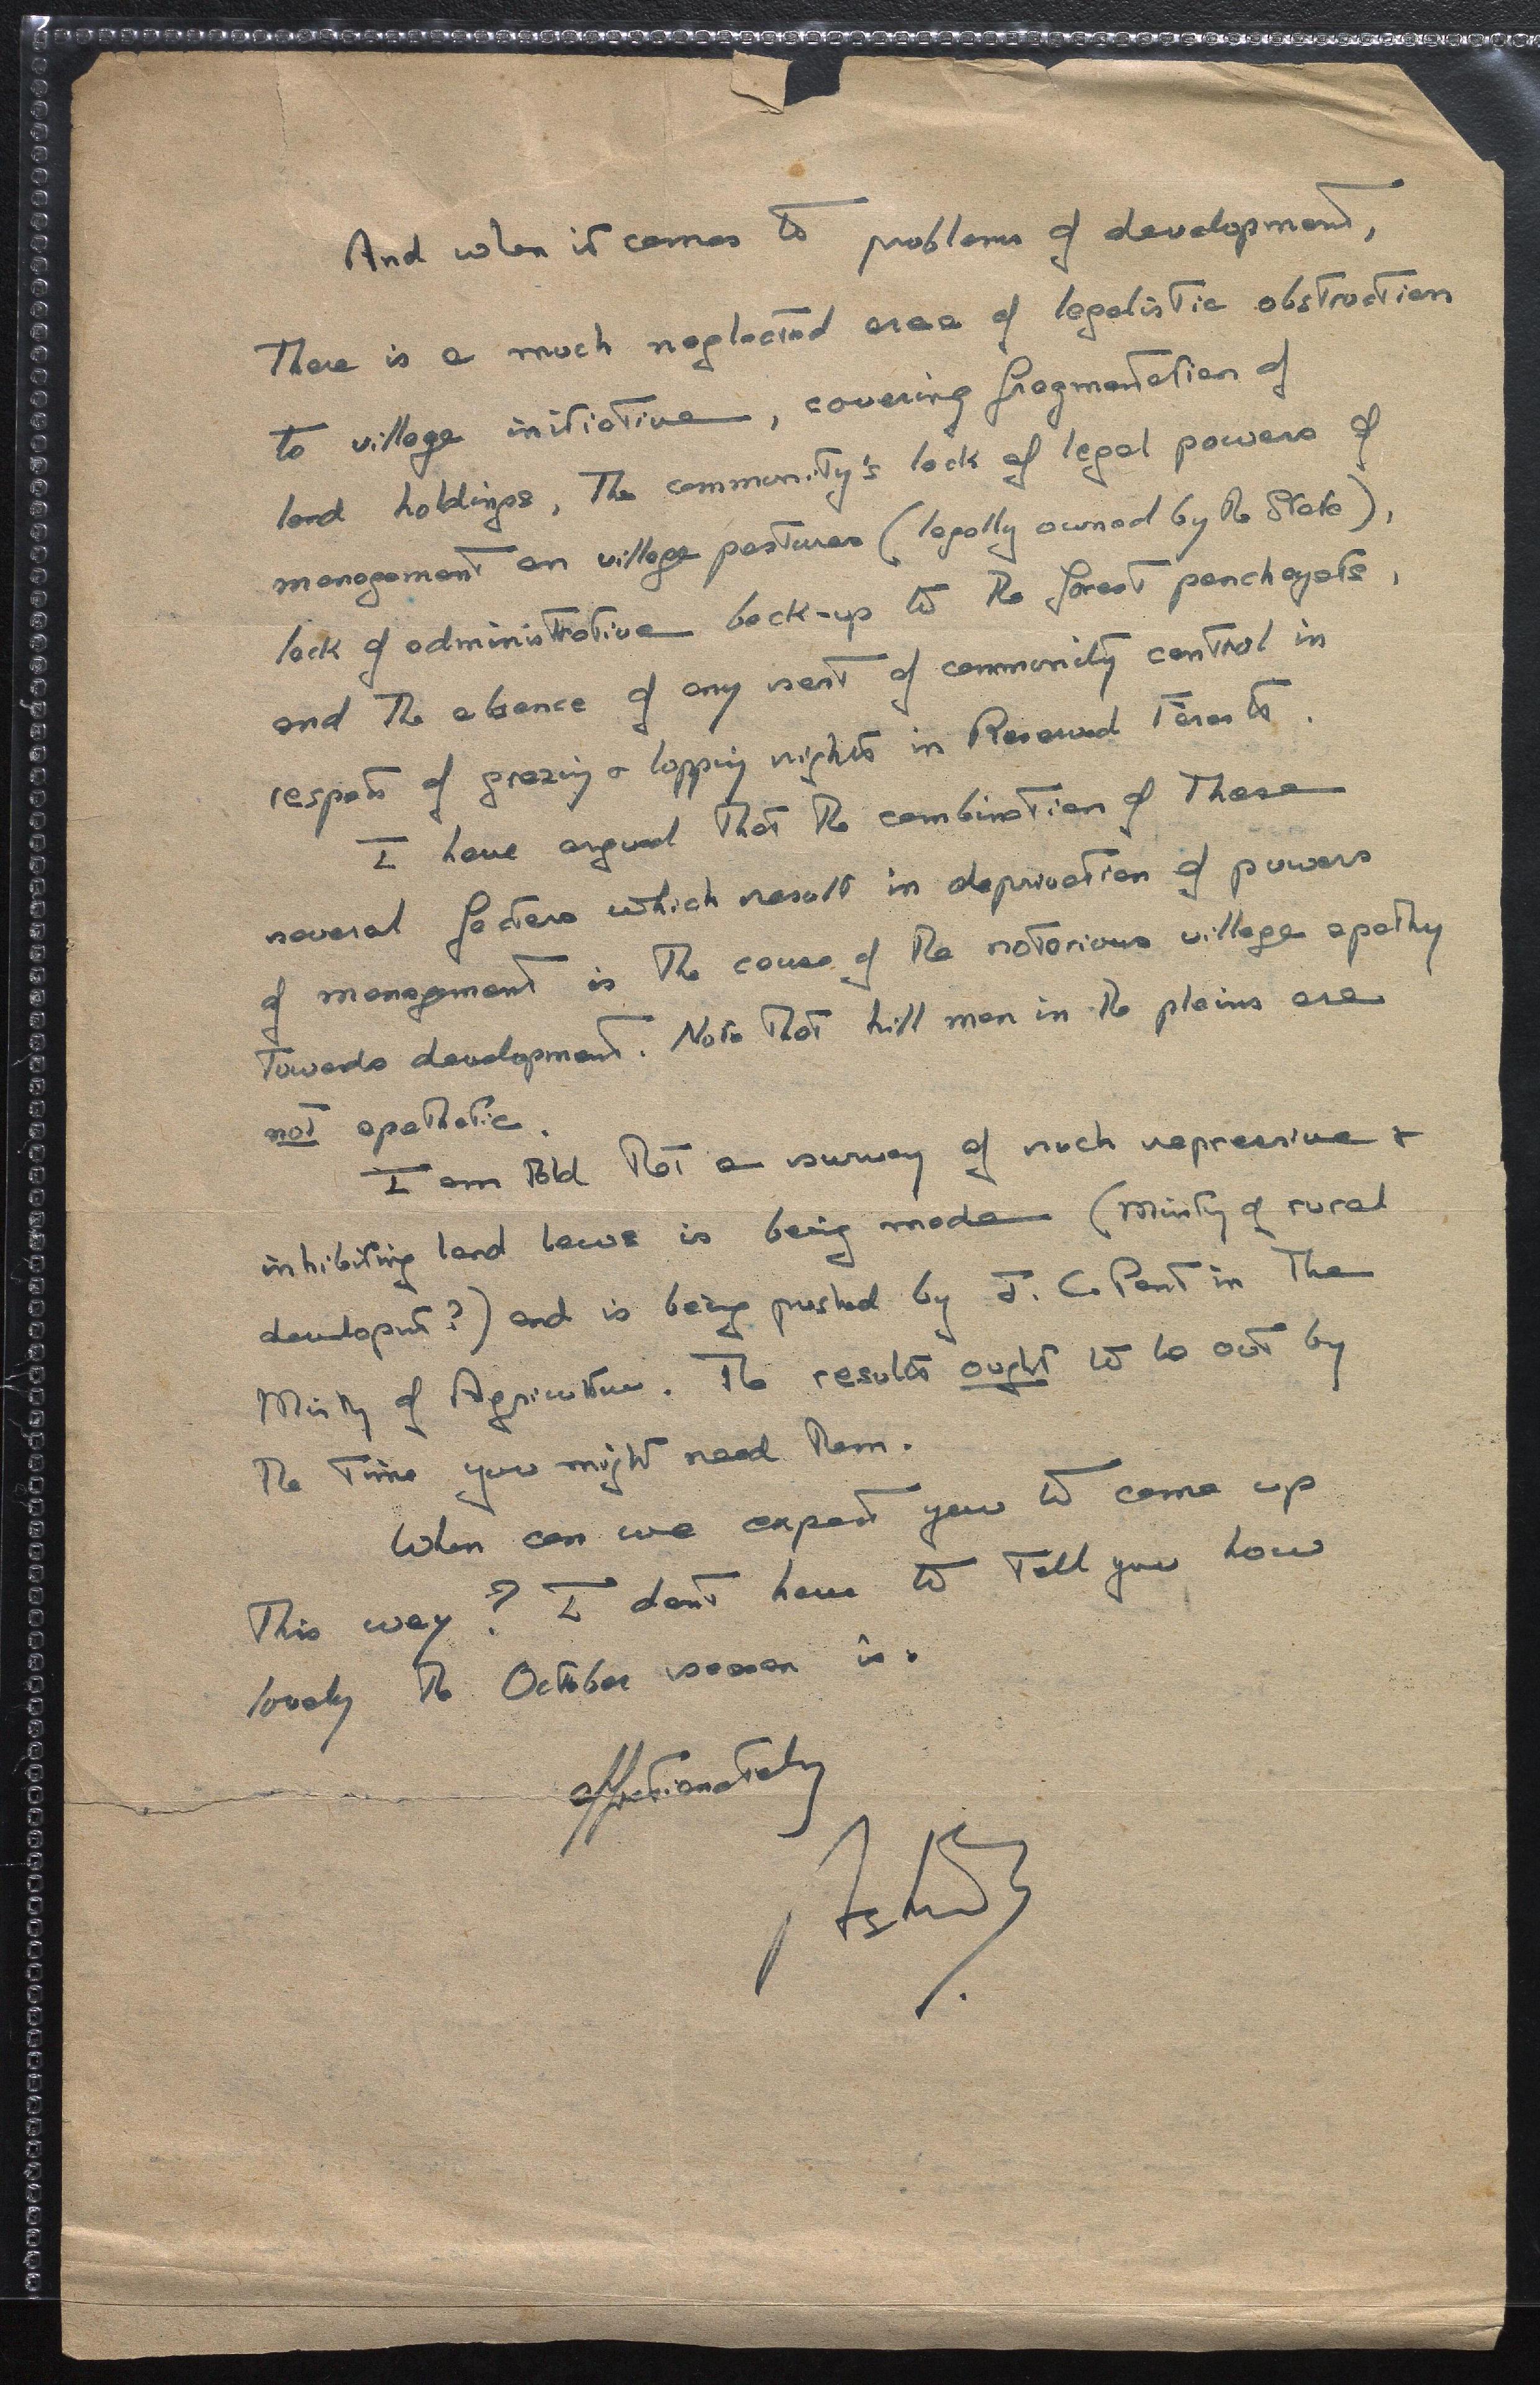 And when it comes to problems of development,
there is a much neglected area of legalistic obstruction
to village initiative, covering fragmentation of
land holdings, the community's lack of legal powers of
management on village pastures (legally owned by the State),
lack of administrative back-up to the forest panchayats,
and the absence of any sort of community control in
respect of grazing & lopping rights in Reserved Forests.
I have argued that the combination of these
several factors which result in deprivation of powers
of management is the cause of the notorious village apathy
towards development. Note that hill men in the plains are
not apathetic.
I am told that a survey of such repressive &
inhibiting land laws is being made (Minsty of rural
developmt?) and is being pushed by J. C. Pant in the
Minsty of Agriculture. The results ought to be out by
the time you might need them.
When can we expect you to come up
this way? I don't have to tell you how
lovely the October season is.
affectionately